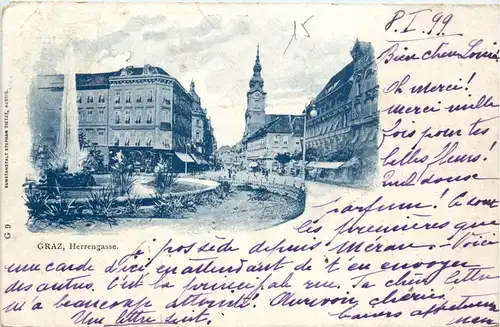 8. I. 99
Bien cher Louis
Oh merci!
Merci mille
fois pour tes
belles fleurs!
Quel doux
parfum! Ce sont
les premières que
je possède depuis Méran. Voici
une carde d'ici en attendant de t'en envoyer
des autres. C'est la principale rue. Ta chère lettre
m'a beaucoup étonné! Au revoir, chérie,
Une lettre suit.
baisers affectueux
GRAZ, Herrengasse.
G 9
KUNSTANSTALT STEPHAN TIETZE, AUSSIG.
15